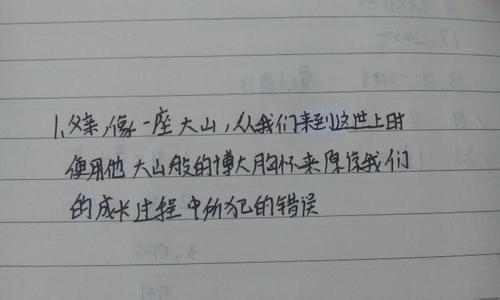 1、父亲,像一座大山,从我们来到这世上时
便用他大山般的博大胸怀来原谅我们
的成长过程中所犯的错误